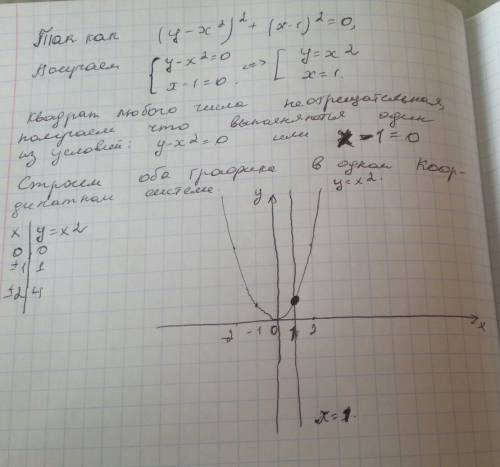 Так как (y-x²)²+(x-1)²=0,
Получаем { y-x²=0 x-1=0. => [ y=x2 x=1.
Квадрат любого числа неотрецательная,
получаем что выполняются один
из условий: y-x²=0 или x-1=0
Строем оба графика в одном коор-
динатном системе y=x2.
x | y=x2
0 | 0
±1 | 1
±2 | 4
y
-2 -1 0 1 2 x
x=1.